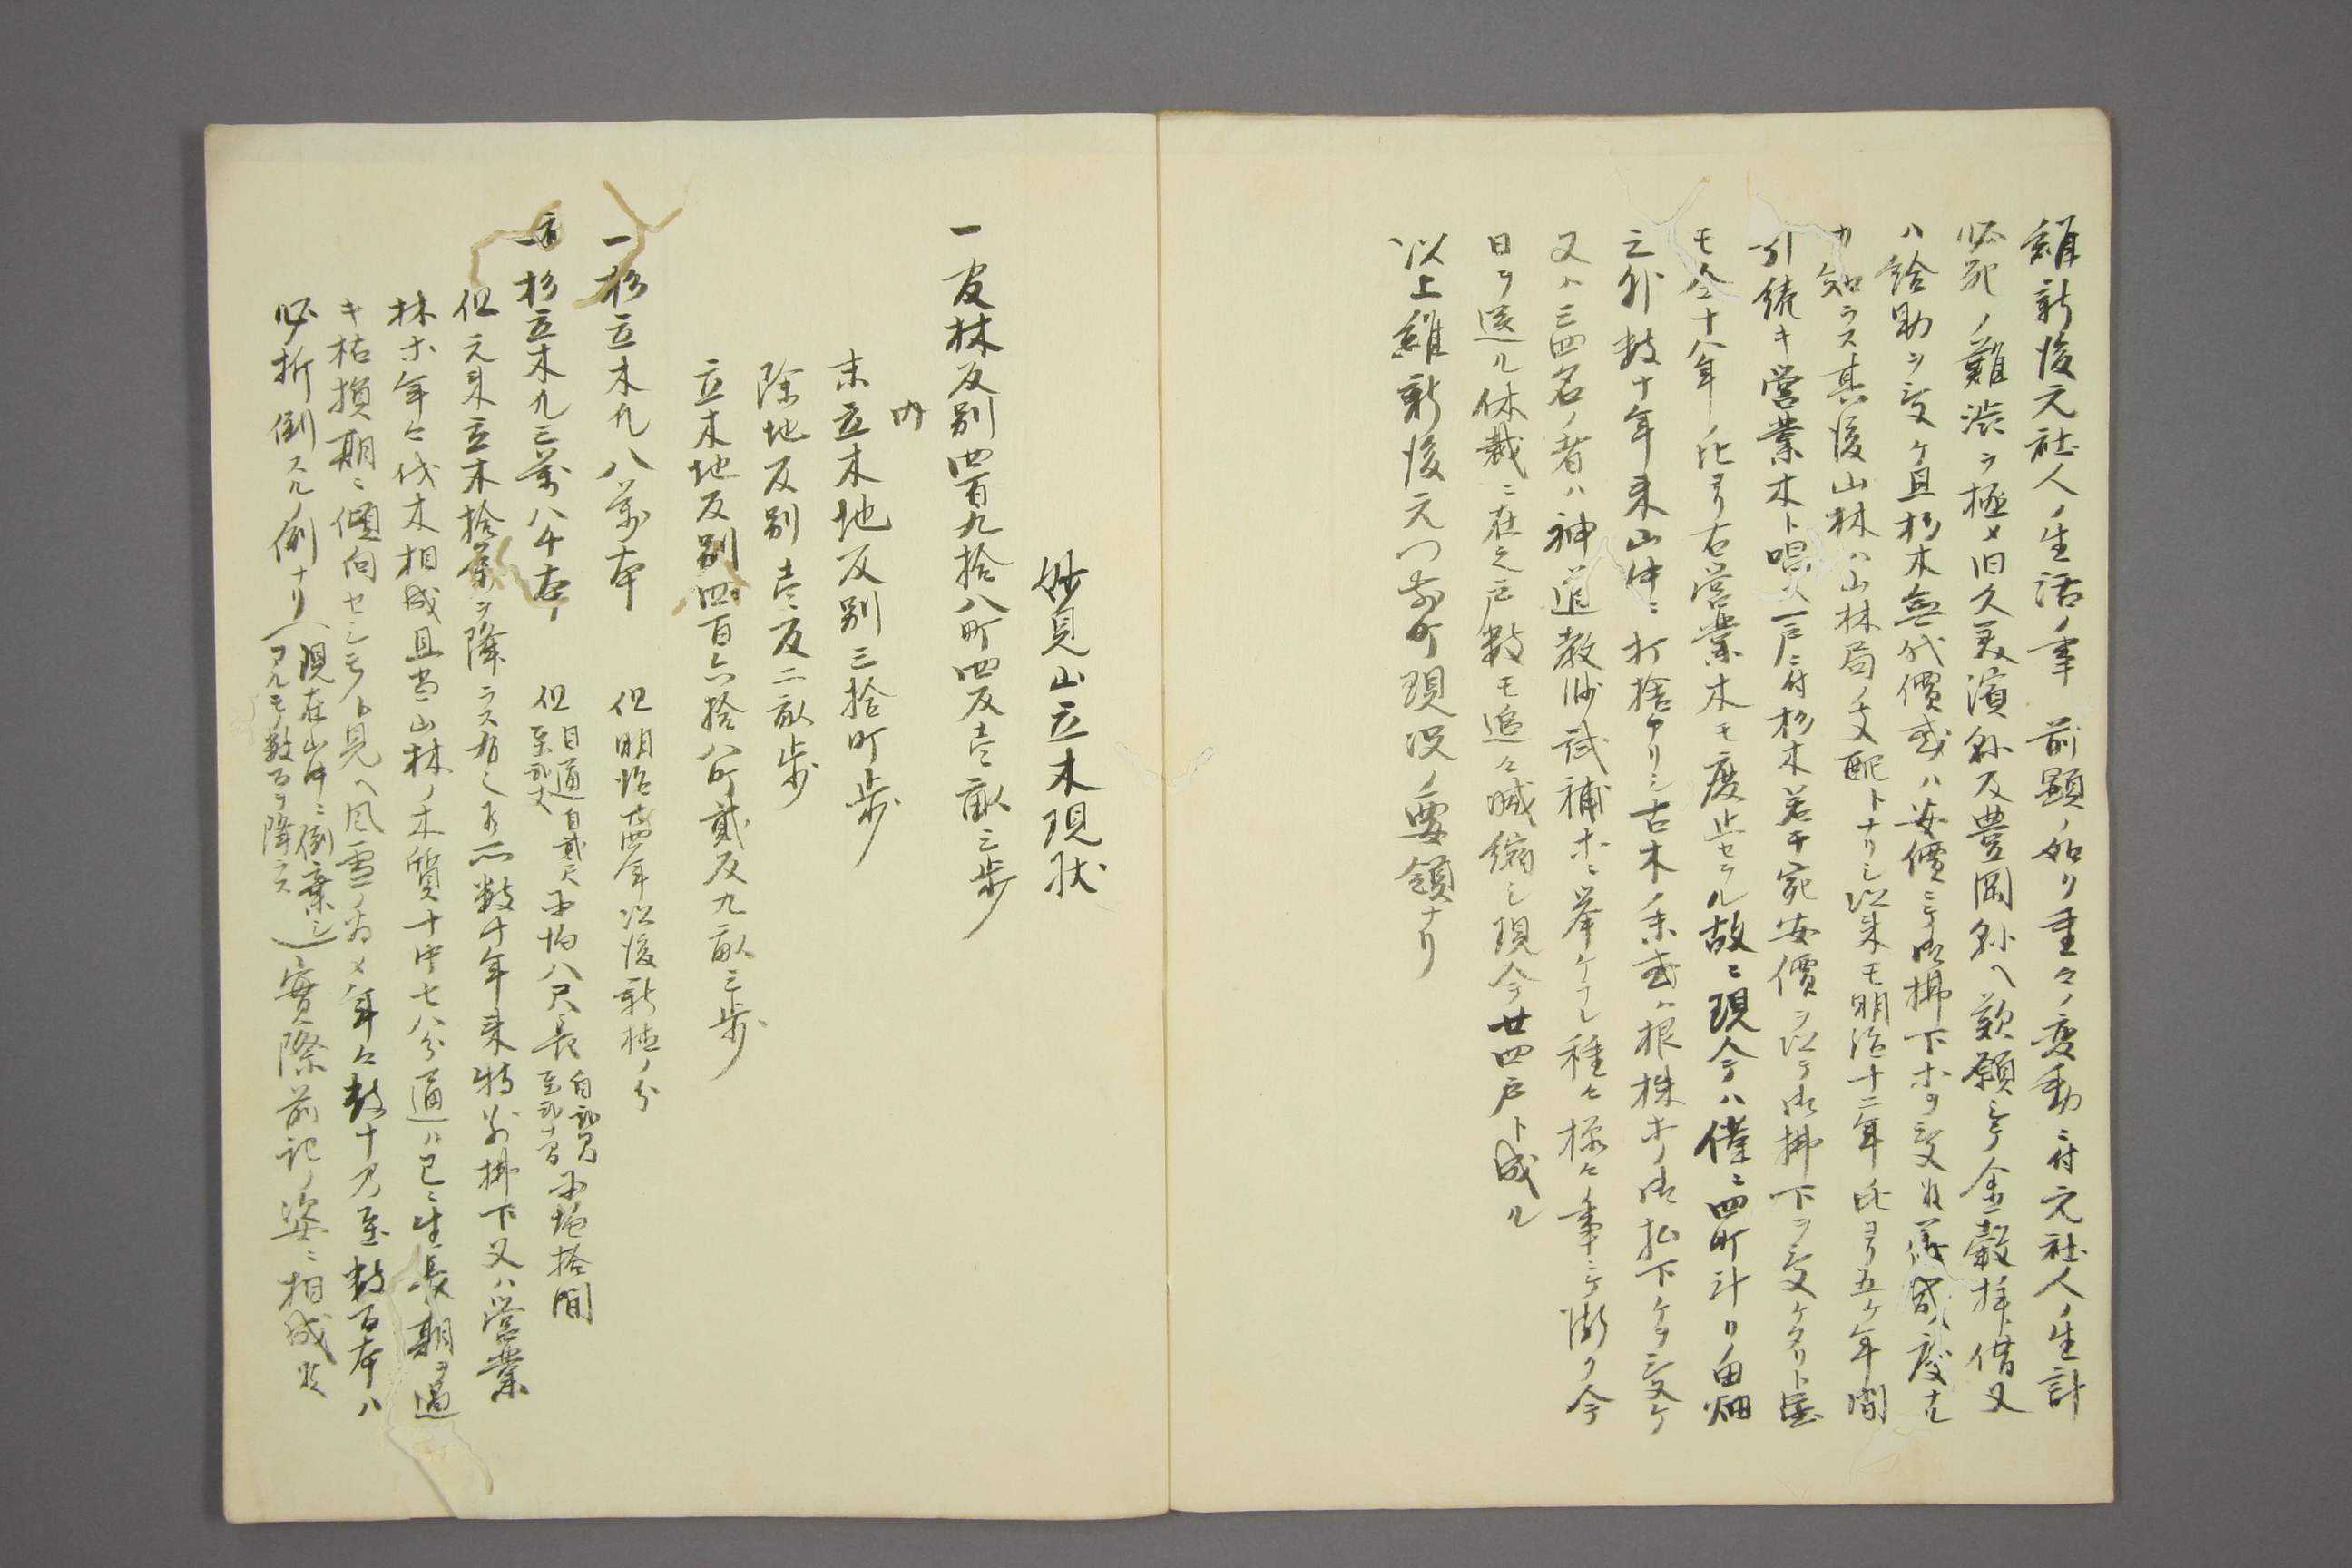 維新後元社人ノ生活ノ事 前顕ノ如ク重々ノ変動ニ付元社人ノ生計
必死ノ難渋ヲ極メ旧久美濱縣及豊岡縣ヘ歎願シテ金穀拝借又
ハ給助ヲ受ケ且杉木無代價或ハ安價ニテ御拂下ホヲ受ル
知ラス其後山林ハ山林局ノ支配トナリシ以来モ明治十二年比ヨリ五ケ年間
引続キ営業木ト唱ヘ一戸ニ付杉木若干宛安價ヲ以テ御拂下ヲ受ケタリト虽
モ仝十八年ノ比ヨリ右営業木モ廃止セラル故ニ現今ハ僅ニ四町計リノ田畑
之外数十年来山中ニ打捨アリシ古木ノ末或ハ根株ホノ御払下ケヲ受ケ
又ハ三四名ノ者ハ神道教師試補ホニ挙ケラレ種々様々ノ事ニテ漸ク今
日ヲ送ル休裁ニ在之戸数モ追々減縮シ現今廿四戸ト成ル
以上維新後元つ前町現况ノ要領ナリ
妙見山立木現状
一官林反別四百九拾八町四反壱畝三歩
内
未立木地反別三拾町歩
除地反別壱反二畝歩
立木地反別四百六拾八町貳反九畝三歩
一杉立木凡八萬本 但明治十四年以後新植ノ分
一杉立木凡三萬八千本 但目通自貳尺至貳丈平均八尺長平均拾間
但元来立木拾萬ヲ降ラス有之候所数十年来特別拂下又ハ営業
林ホ年々伐木相成且当山林ノ木質十中七八分通ハ已ニ生長期ヲ過
キ枯損期ニ傾向セシモノト見ヘ風雪ノ為メ年々数十乃至数百本ハ
必折倒スルノ例ナリ（現在山中ニ倒棄シアルモノ数百ヲ降ラス）實際前記ノ姿ニ相成候